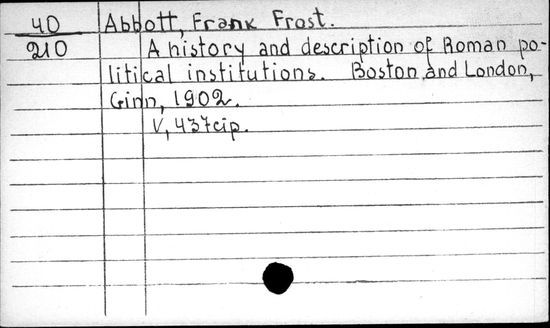 40 Abbott, Frank Frost.
210 A history and description of Roman po-
litical institutions. Boston and London,
Ginn, 1902.
V, 437 cip.